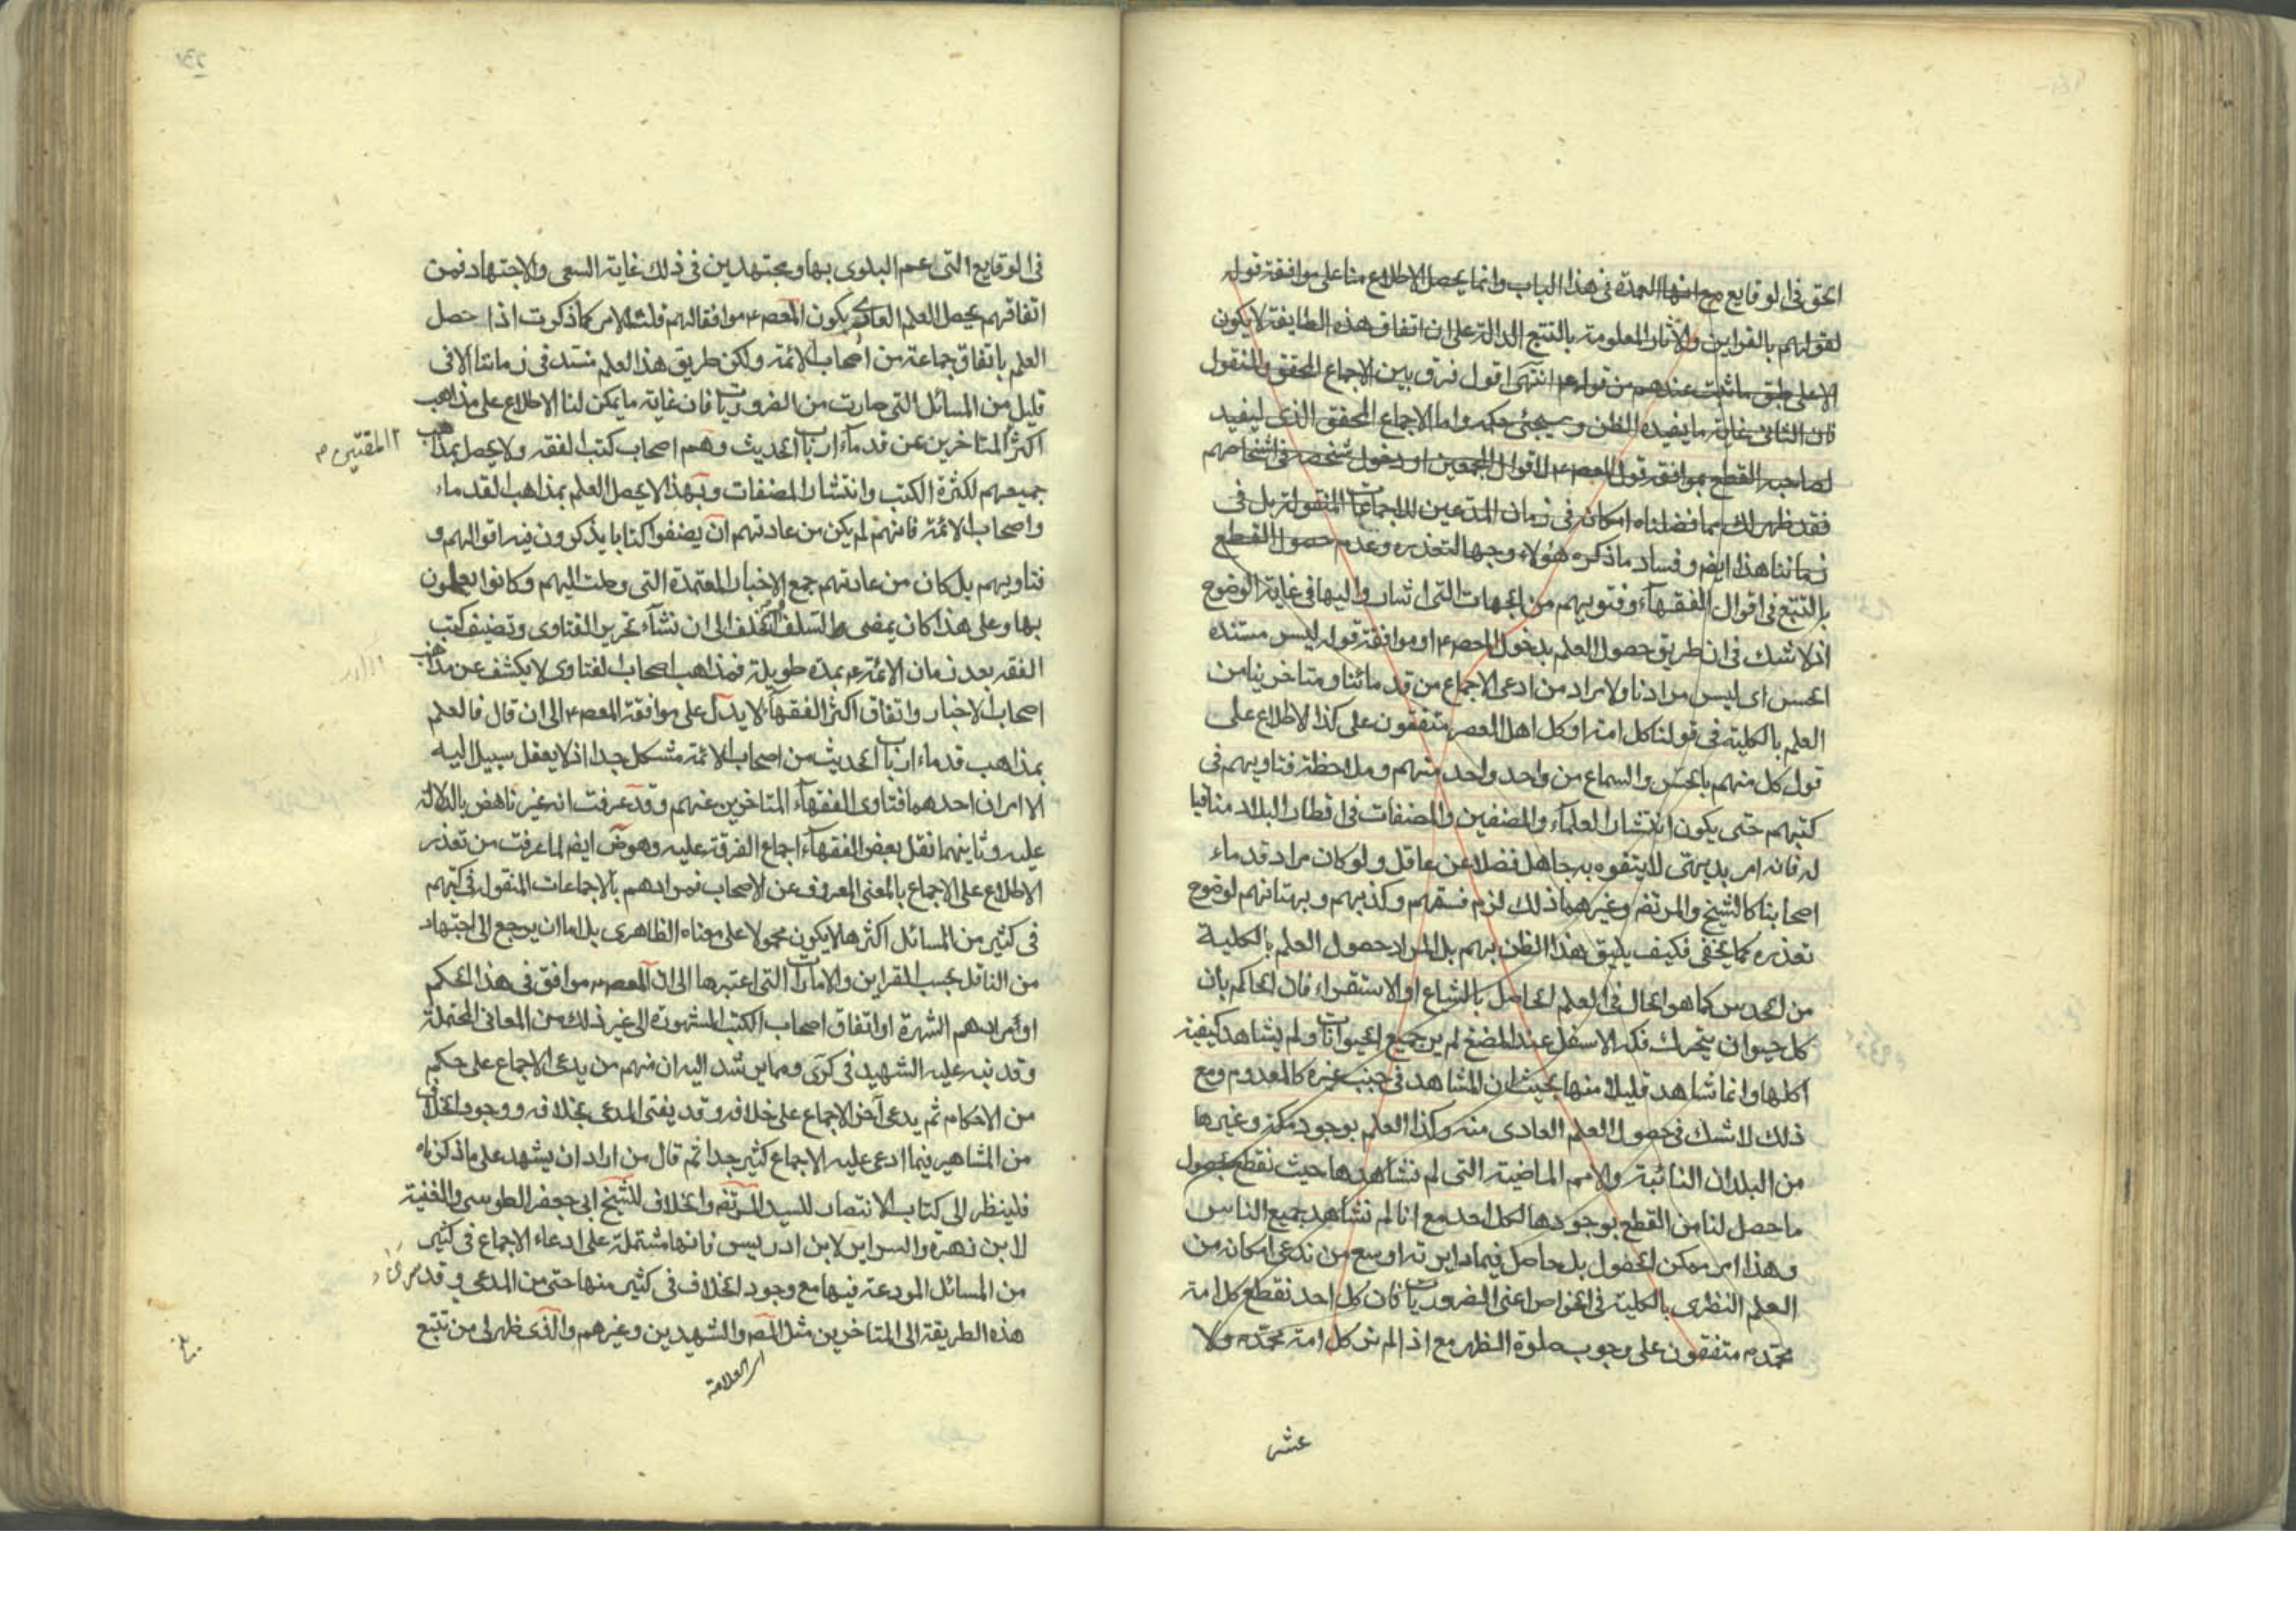 الحق فى الوقايع مع انها العمدة فى هذا الباب وانما يحصل الاطلاع منا على موافقة قوله
لقولهم بالقراين والآثار المعلومة بالتتبع الدالة على ان اتفاق هذه الطايفة لا يكون
الا على طبق ما ثبت عندهم من قوله انتهى اقول فرق بين الاجماع المحقق والمنقول
فان الثانى غاية ما يفيده الظن وسيجئ حكمه واما الاجماع المحقق الذى ليفيد
لصاحبه القطع بموافقة قول المعصوم لاقوال المجمعين او دخول شخصه فى اشخاصهم
فقد ظهر لك مما فصلناه امكانه فى زمان المدعين للاجماعات المنقولة بل فى
زماننا هذا ايضا وفساد ما ذكره هؤلاء وجها لتعذره وعدم حصول القطع
بالتتبع فى اقوال الفقهآء وفتويهم من الجهات التى اشاروا اليها فى غاية الوضوح
اذ لا شك فى ان طريق حصول العلم بدخول المعصوم او موافقة قوله ليس مستنده
الحس اى ليس مرادنا ولا مراد من ادعى الاجماع من قدمائنا ومتاخرينا من
العلم بالكلية فى قولنا كل امة او كل اهل العصر متفقون على كذا الاطلاع على
قول كل منهم بالحس والسماع من واحد واحد منهم وملاحظة فتاويهم فى
كتبهم حتى يكون انتشار العلمآء والمصنفين والمصنفات فى اقطار البلاد منافيا
له فانه امر بديهى لا يتفوه به جاهل فضلا عن عاقل ولو كان مراد قدماء
اصحابنا كالشيخ والمرتضى وغيرهما ذلك لزم فسقهم وكذبهم وبهتانهم لوضوح
تعذره كما يخفى فكيف يليق هذا الظن بهم بل المراد حصول العلم بالكلية
من الحدس كما هو الحال فى العلم الحاصل بالشياع او الاستقراء فان الحاكم بان
كل حيوان يتحرك فكه الاسفل عند المضغ لم ير جميع الحيوانات ولم يشاهد كيفية
اكلها وانما شاهد قليلا منها بحيث ان المشاهد فى جنب غيره كالمعدوم ومع
ذلك لا شك فى حصول العلم العادى منه وكذا العلم بوجود مكة وغيرها
من البلدان النائية والامم الماضية التى لم نشاهدها حيث نقطع بحصول
ما حصل لنا من القطع بوجودها لكل احد مع انا لم نشاهد جميع الناس
وهذا امر ممكن الحصول بل حاصل فيما دايرته اوسع من ندعى امكانه من
العلم النظرى بالكلية فى الخواص اعنى الضروريات فان كل احد نقطع كل امة
محمد متفقون على وجوب صلوة الظهر مع اذ لم نر كل امة محمد ولا
عشر
فى الوقايع التى عم البلوى بها ومجتهدين فى ذلك غاية السعى والاجتهاد فمن
اتفاقهم يحصل العلم العادى بكون المعصوم موافقا لهم قلت الامر كما ذكرت اذا حصل
العلم باتفاق جماعة من اصحاب الائمة ولكن طريق هذا العلم منسد فى زماننا الا فى
قليل من المسائل التى صارت من الضروريات فان غاية ما يمكن لنا الاطلاع على مذاهب
اكثر المتاخرين عن قدمآء ارباب الحديث وهم اصحاب كتب الفقه ولا يحصل بمذاهب
جميعهم لكثرة الكتب وانتشار المصنفات وبهذا لا يحصل العلم بمذاهب القدماء
واصحاب الائمة فانهم لم يكن من عادتهم ان يصنفوا كتابا يذكرون فيه اقوالهم و
فتاويهم بل كان من عادتهم جمع الاخبار المعتمدة التى وصلت اليهم وكانوا يعملون
بها وعلى هذا كان يمضى السلف الخلف الى ان نشآء تحرير الفتاوى وتصنيف كتب
الفقه بعد زمان الائمة بمدة طويلة فمذاهب اصحاب الفتاوى لا يكشف عن مذاهب
اصحاب الاخبار واتفاق اكثر الفقهآء لا يدل على موافقة المعصوم الى ان قال فالعلم
بمذاهب قدماء ارباب الحديث من اصحاب الائمة مشكل جدا اذ لا يعقل سبيل اليه
الا امران احدهما فتاوى الفقهآء المتاخرين عنهم وقد عرفت انه غير ناهض بالدلالة
عليه وثانيهما نقل بعض الفقهآء اجماع الفرقة عليه وهو ايضا لما عرفت من تعذر
الاطلاع على الاجماع بالمعنى المعروف عن الاصحاب فمرادهم بالاجماعات المنقولة فى كتبهم
فى كثير من المسائل اكثرها لا يكون محمولا على معناه الظاهرى بل اما ان يرجع الى اجتهاد
من الناقل بحسب القراين والامارات التى اعتبرها الى ان المعصوم موافق فى هذا الحكم
او مرادهم الشهرة او اتفاق اصحاب الكتب المشهورة الى غير ذلك من المعانى المحتملة
وقد نبه عليه الشهيد فى كرى ومما يرشد اليه ان منهم من يدعى الاجماع على حكم
من الاحكام ثم يدعى آخر الاجماع على خلافه وقد يفتى المدعى بخلافه ووجود الخلاف
من المشاهير فيما ادعى عليه الاجماع كثير جدا ثم قال من اراد ان يشهد على ما ذكرناه
فلينظر الى كتاب الانتصار للسيد المرتضى والخلاف للشيخ ابى جعفر الطوسى والغنية
لابن زهرة والسراير لابن ادريس فانها مشتملة على ادعاء الاجماع فى كثير
من المسائل المودعة فيها مع وجود الخلاف فى كثير منها حتى من المدعى وقد
هذه الطريقة الى المتاخرين مثل والشهيدين وغيرهم والذى ظهر لى من تتبع
العلامة